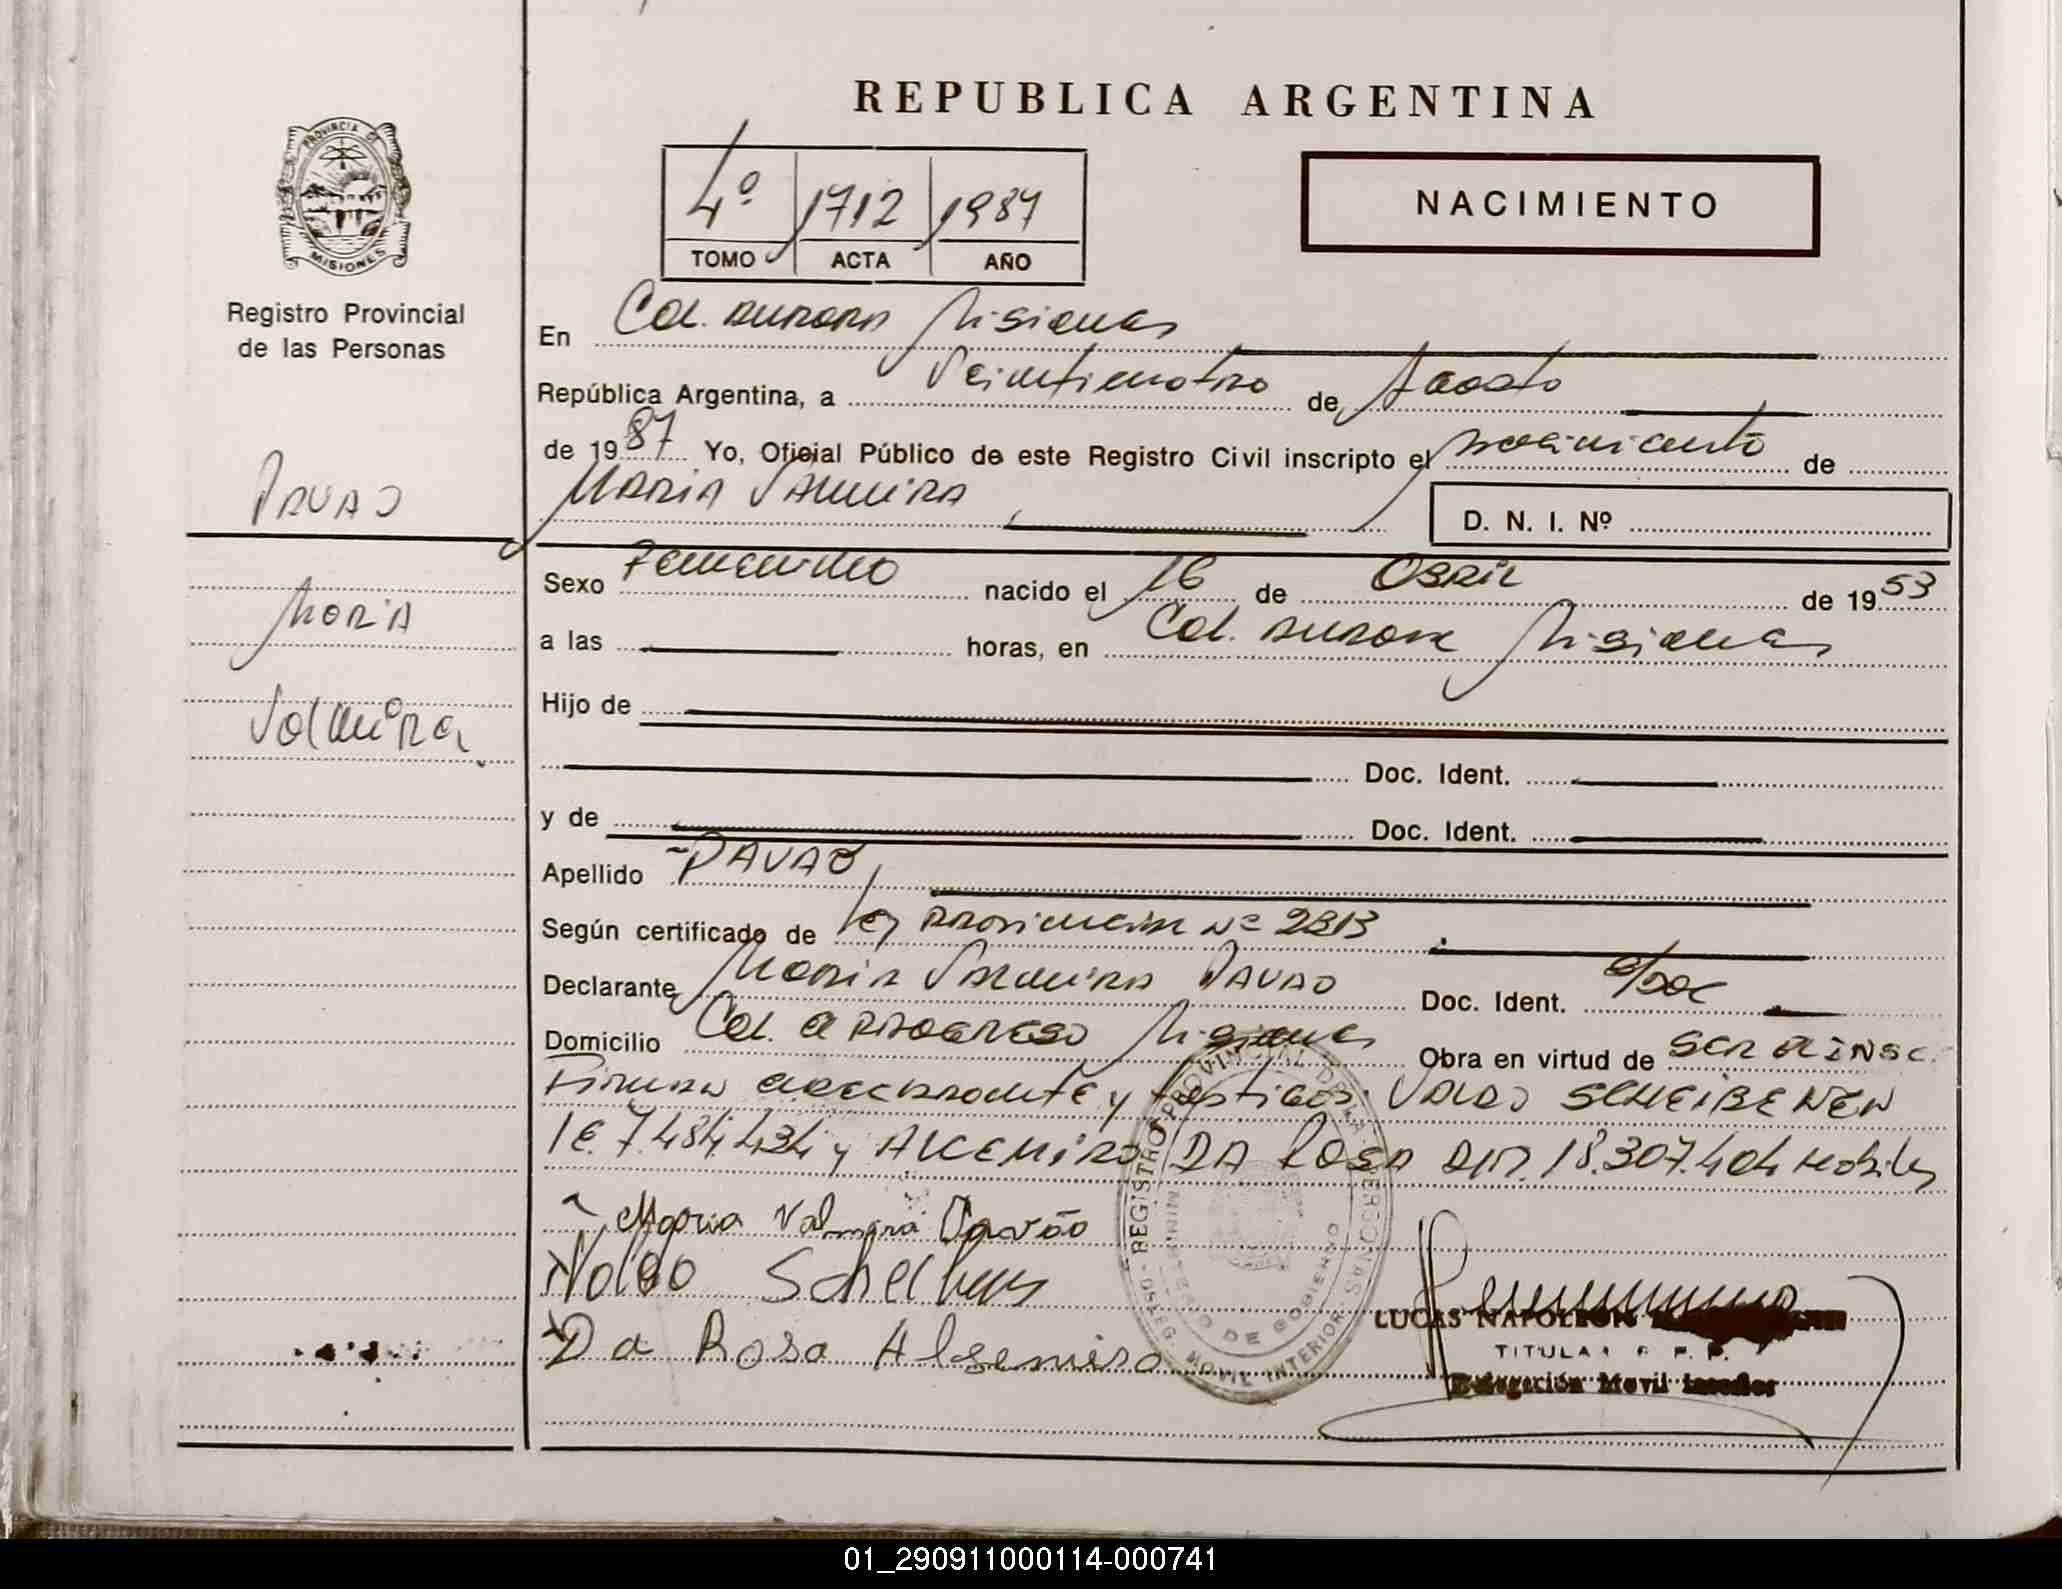 REPUBLICA ARGENTINA
PROVINCIA DE
MISIONES
Registro Provincial
de las Personas
4º 1712 1987
TOMO ACTA AÑO
NACIMIENTO
En Col. Aurora Misiones
República Argentina, a Veinticuatro de Agosto
de 1987 Yo, Oficial Público de este Registro Civil inscripto el nacimiento de
Maria Valmira
D. N. I. Nº
PAVAO
Maria
Valmira
Sexo Femenino nacido el 16 de Abril de 1953
a las horas, en Col. Aurora Misiones
Hijo de
Doc. Ident.
y de Doc. Ident.
Apellido PAVAO
Según certificado de Ley Provincial Nº 2313
Declarante Maria Valmira Pavao Doc. Ident. S/Doc
Domicilio Col. El Progreso Misiones Obra en virtud de ser el insc.
Firman declarante y testigos
LE. 7.484.434 y ALCEMIRO DA ROSA DNI. 18.307.404 Habiles
Maria Valmira Pavão
Da Rosa Alsemiro
REGISTRO PROVINCIAL DE LAS PERSONAS
MINISTERIO DE GOBIERNO
DELEG. MOVIL INTERIOR
LUCAS NAPOLEON
TITULAR R. P. P.
Delegación Movil Interior
01_290911000114-000741